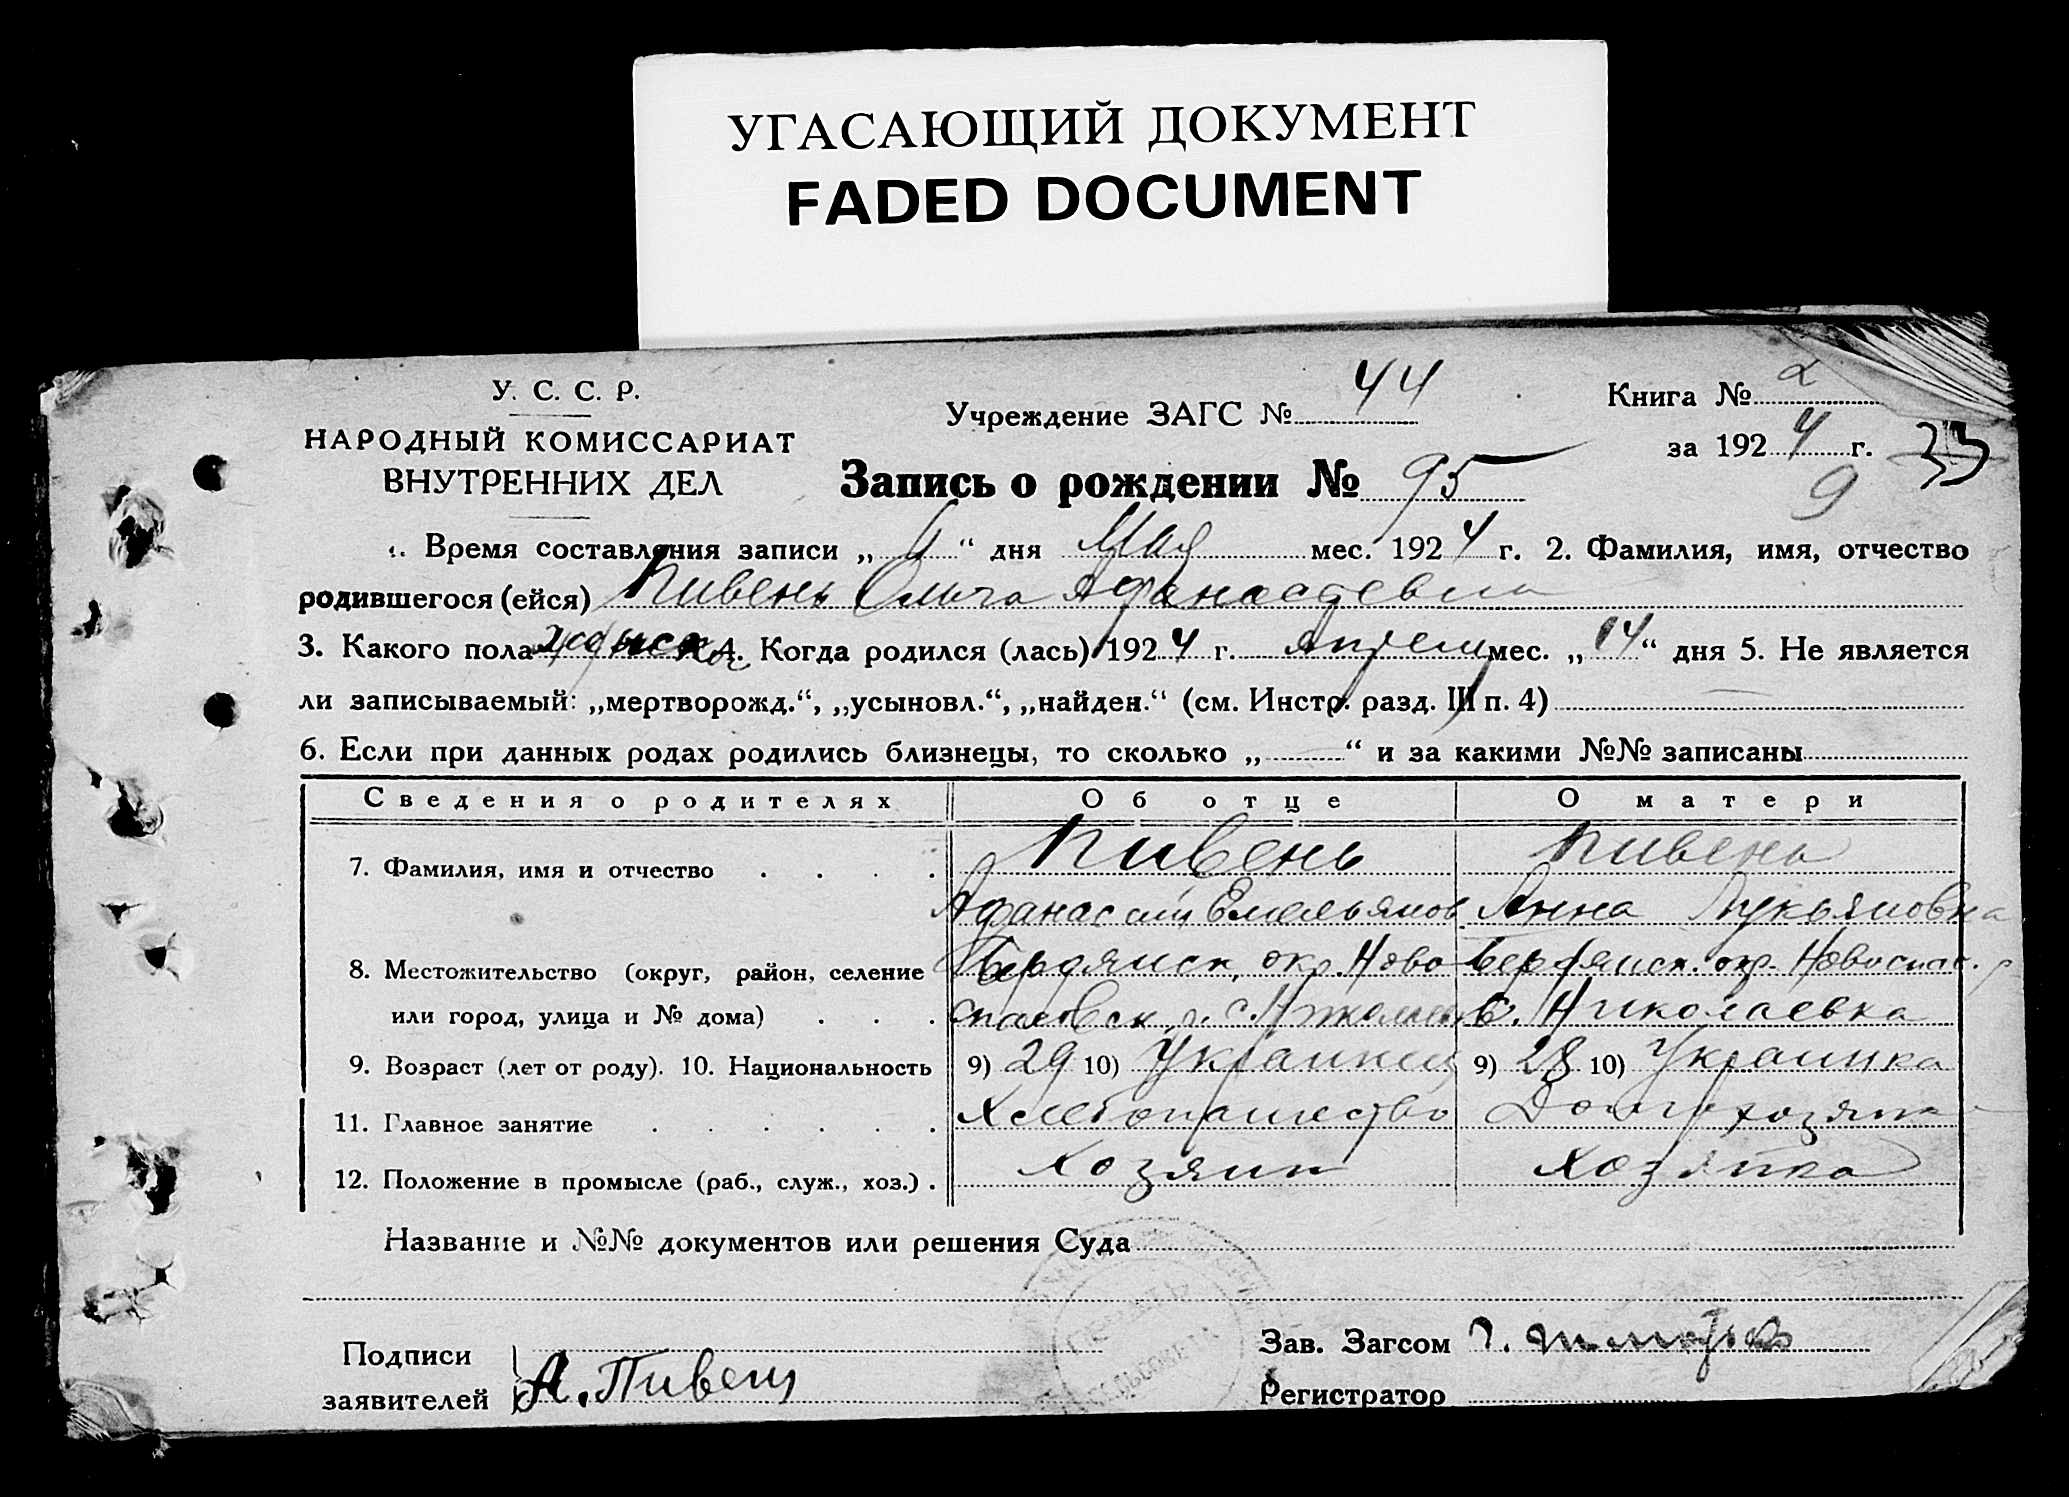 УГАСАЮЩИЙ ДОКУМЕНТ
FADED DOCUMENT
У. С. С. Р.
НАРОДНЫЙ КОМИССАРИАТ
ВНУТРЕННИХ ДЕЛ
Учреждение ЗАГС № 44
Книга № 2
за 1924 г. 33
9
Запись о рождении № 95
1. Время составления записи „ “ дня Мая мес. 1924 г. 2. Фамилия, имя, отчество
родившегося (ейся) Пивень Ольга Афанасьевна
3. Какого пола женска 4. Когда родился (лась) 1924 г. Апреля мес. „14“ дня 5. Не является
ли записываемый: „мертворожд.“, „усыновл.“, „найден.“ (см. Инстр. разд. III п. 4)
6. Если при данных родах родились близнецы, то сколько „ “ и за какими №№ записаны
Сведения о родителях Об отце О матери
7. Фамилия, имя и отчество Пивень Пивень
Афанасий Емельянов Анна Лукьяновна
8. Местожительство (округ, район, селение Бердянск. окр. Ново Бердянск. окр. Новоспас. р
или город, улица и № дома) спасовск. р. с. Николаев с. Николаевка
9. Возраст (лет от роду). 10. Национальность 9) 29 10) Украинец 9) 28 10) Украинка
11. Главное занятие Хлебопашество Домохозяйка
12. Положение в промысле (раб., служ., хоз.) Хозяин Хозяйка
Название и №№ документов или решения Суда
Подписи
заявителей А. Пивень
Зав. Загсом
Регистратор
СЕЛЬСОВЕТА